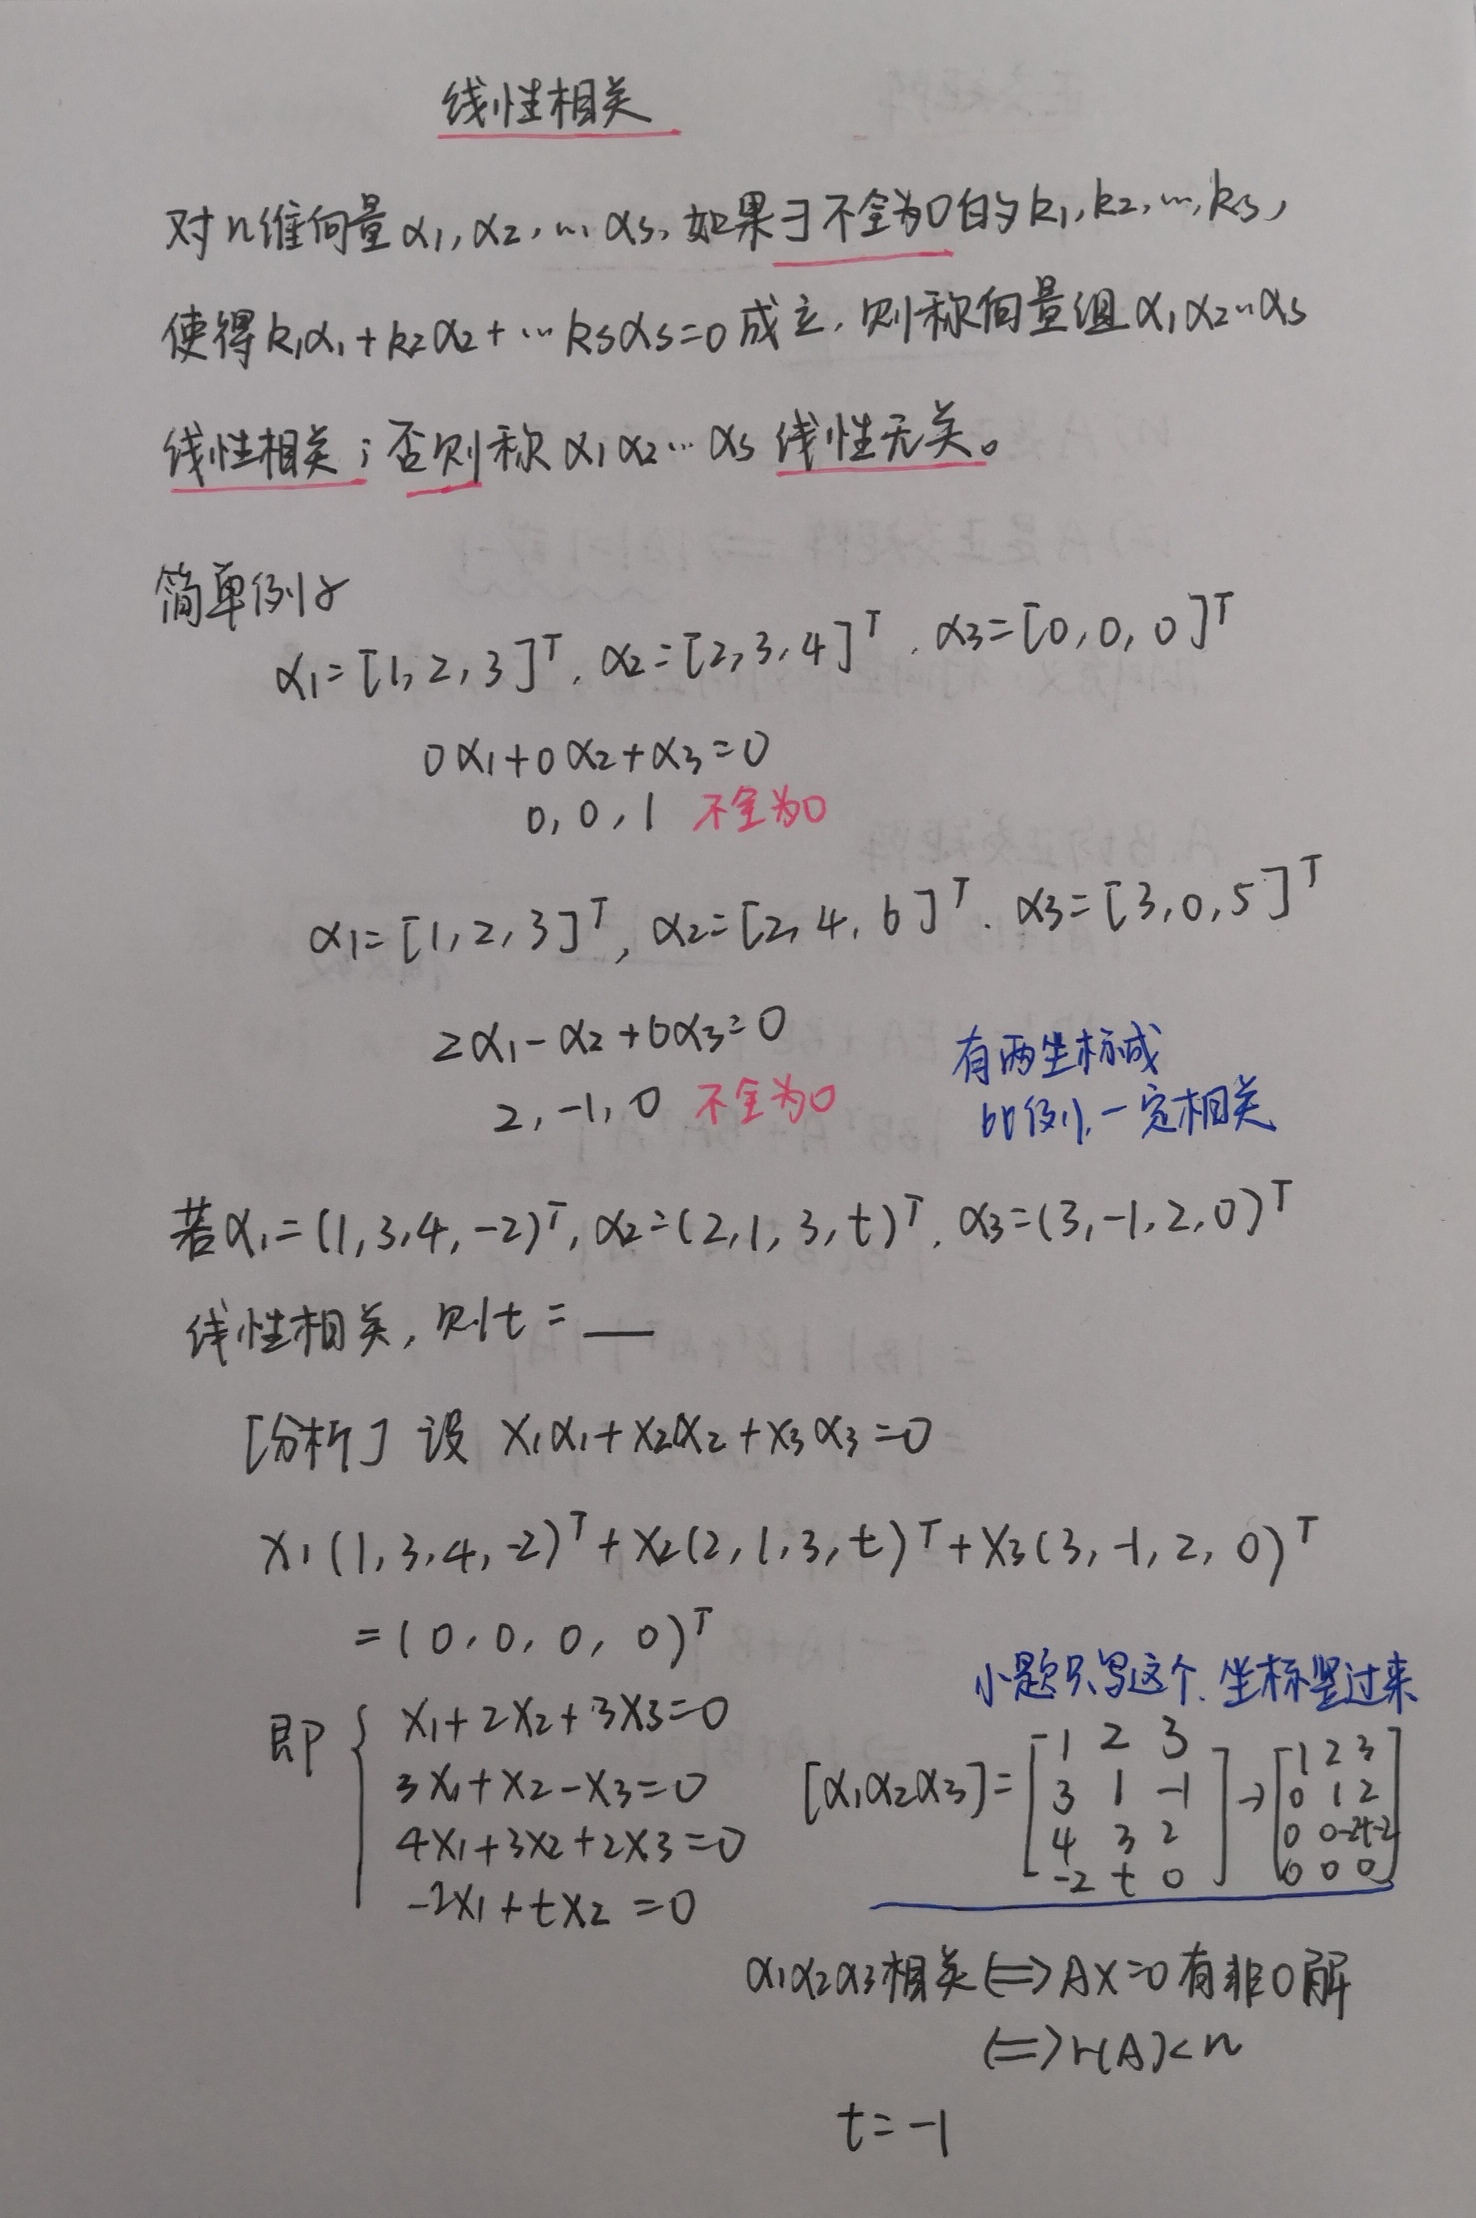 线性相关
对n维向量α1,α2,…,αs,如果∃不全为0的k1,k2,…,ks,
使得k1α1+k2α2+…ksαs=0成立,则称向量组α1α2…αs
线性相关;否则称α1α2…αs线性无关。
简单例子
α1=[1,2,3]ᵀ,α2=[2,3,4]ᵀ,α3=[0,0,0]ᵀ
0α1+0α2+α3=0
0,0,1 不全为0
α1=[1,2,3]ᵀ,α2=[2,4,6]ᵀ.α3=[3,0,5]ᵀ
2α1-α2+0α3=0
2,-1,0 不全为0
有两坐标成
比例,一定相关
若α1=(1,3,4,-2)ᵀ,α2=(2,1,3,t)ᵀ,α3=(3,-1,2,0)ᵀ
线性相关,则t=__
[分析] 设 x1α1+x2α2+x3α3=0
x1(1,3,4,-2)ᵀ+x2(2,1,3,t)ᵀ+x3(3,-1,2,0)ᵀ
=(0,0,0,0)ᵀ
即{ x1+2x2+3x3=0
3x1+x2-x3=0
4x1+3x2+2x3=0
-2x1+tx2=0
小题只写这个.坐标竖过来
1 2 3
[α1α2α3]=[3 1 -1
4 3 2
-2 t 0]
→[1 2 3
0 1 2
0 0 -2t-2
0 0 0]
α1α2α3相关⇔AX=0有非0解
⇔r(A)<n
t=-1